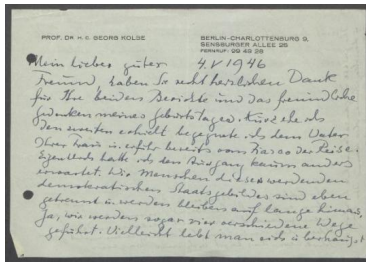 PROF. DR. H. C. GEORG KOLBE
BERLIN-CHARLOTTENBURG 9,
SENSBURGER ALLEE 25
FERNRUF: 99 43 28
4. V 1946
Mein lieber guter
Freund, haben Sie recht herzlichen Dank
für Ihre beiden Berichte und das freundliche
Gedenken meines Geburtstages. Kurz ehe ich
den zweiten erhielt begegnete ich dem Vater
Ihrer Frau u. erfuhr bereits vom der Reise.
Eigentlich hatte ich den Ausgang kaum anders
erwartet. Wir Menschen dieses werdenden
demokratischen Staatsgebildes sind eben
getrennt u. werden bleiben auf lange hinaus,
ja, wir werden sogar vier verschiedene Wege
geführt. Vielleicht lebt man sich überhaupt